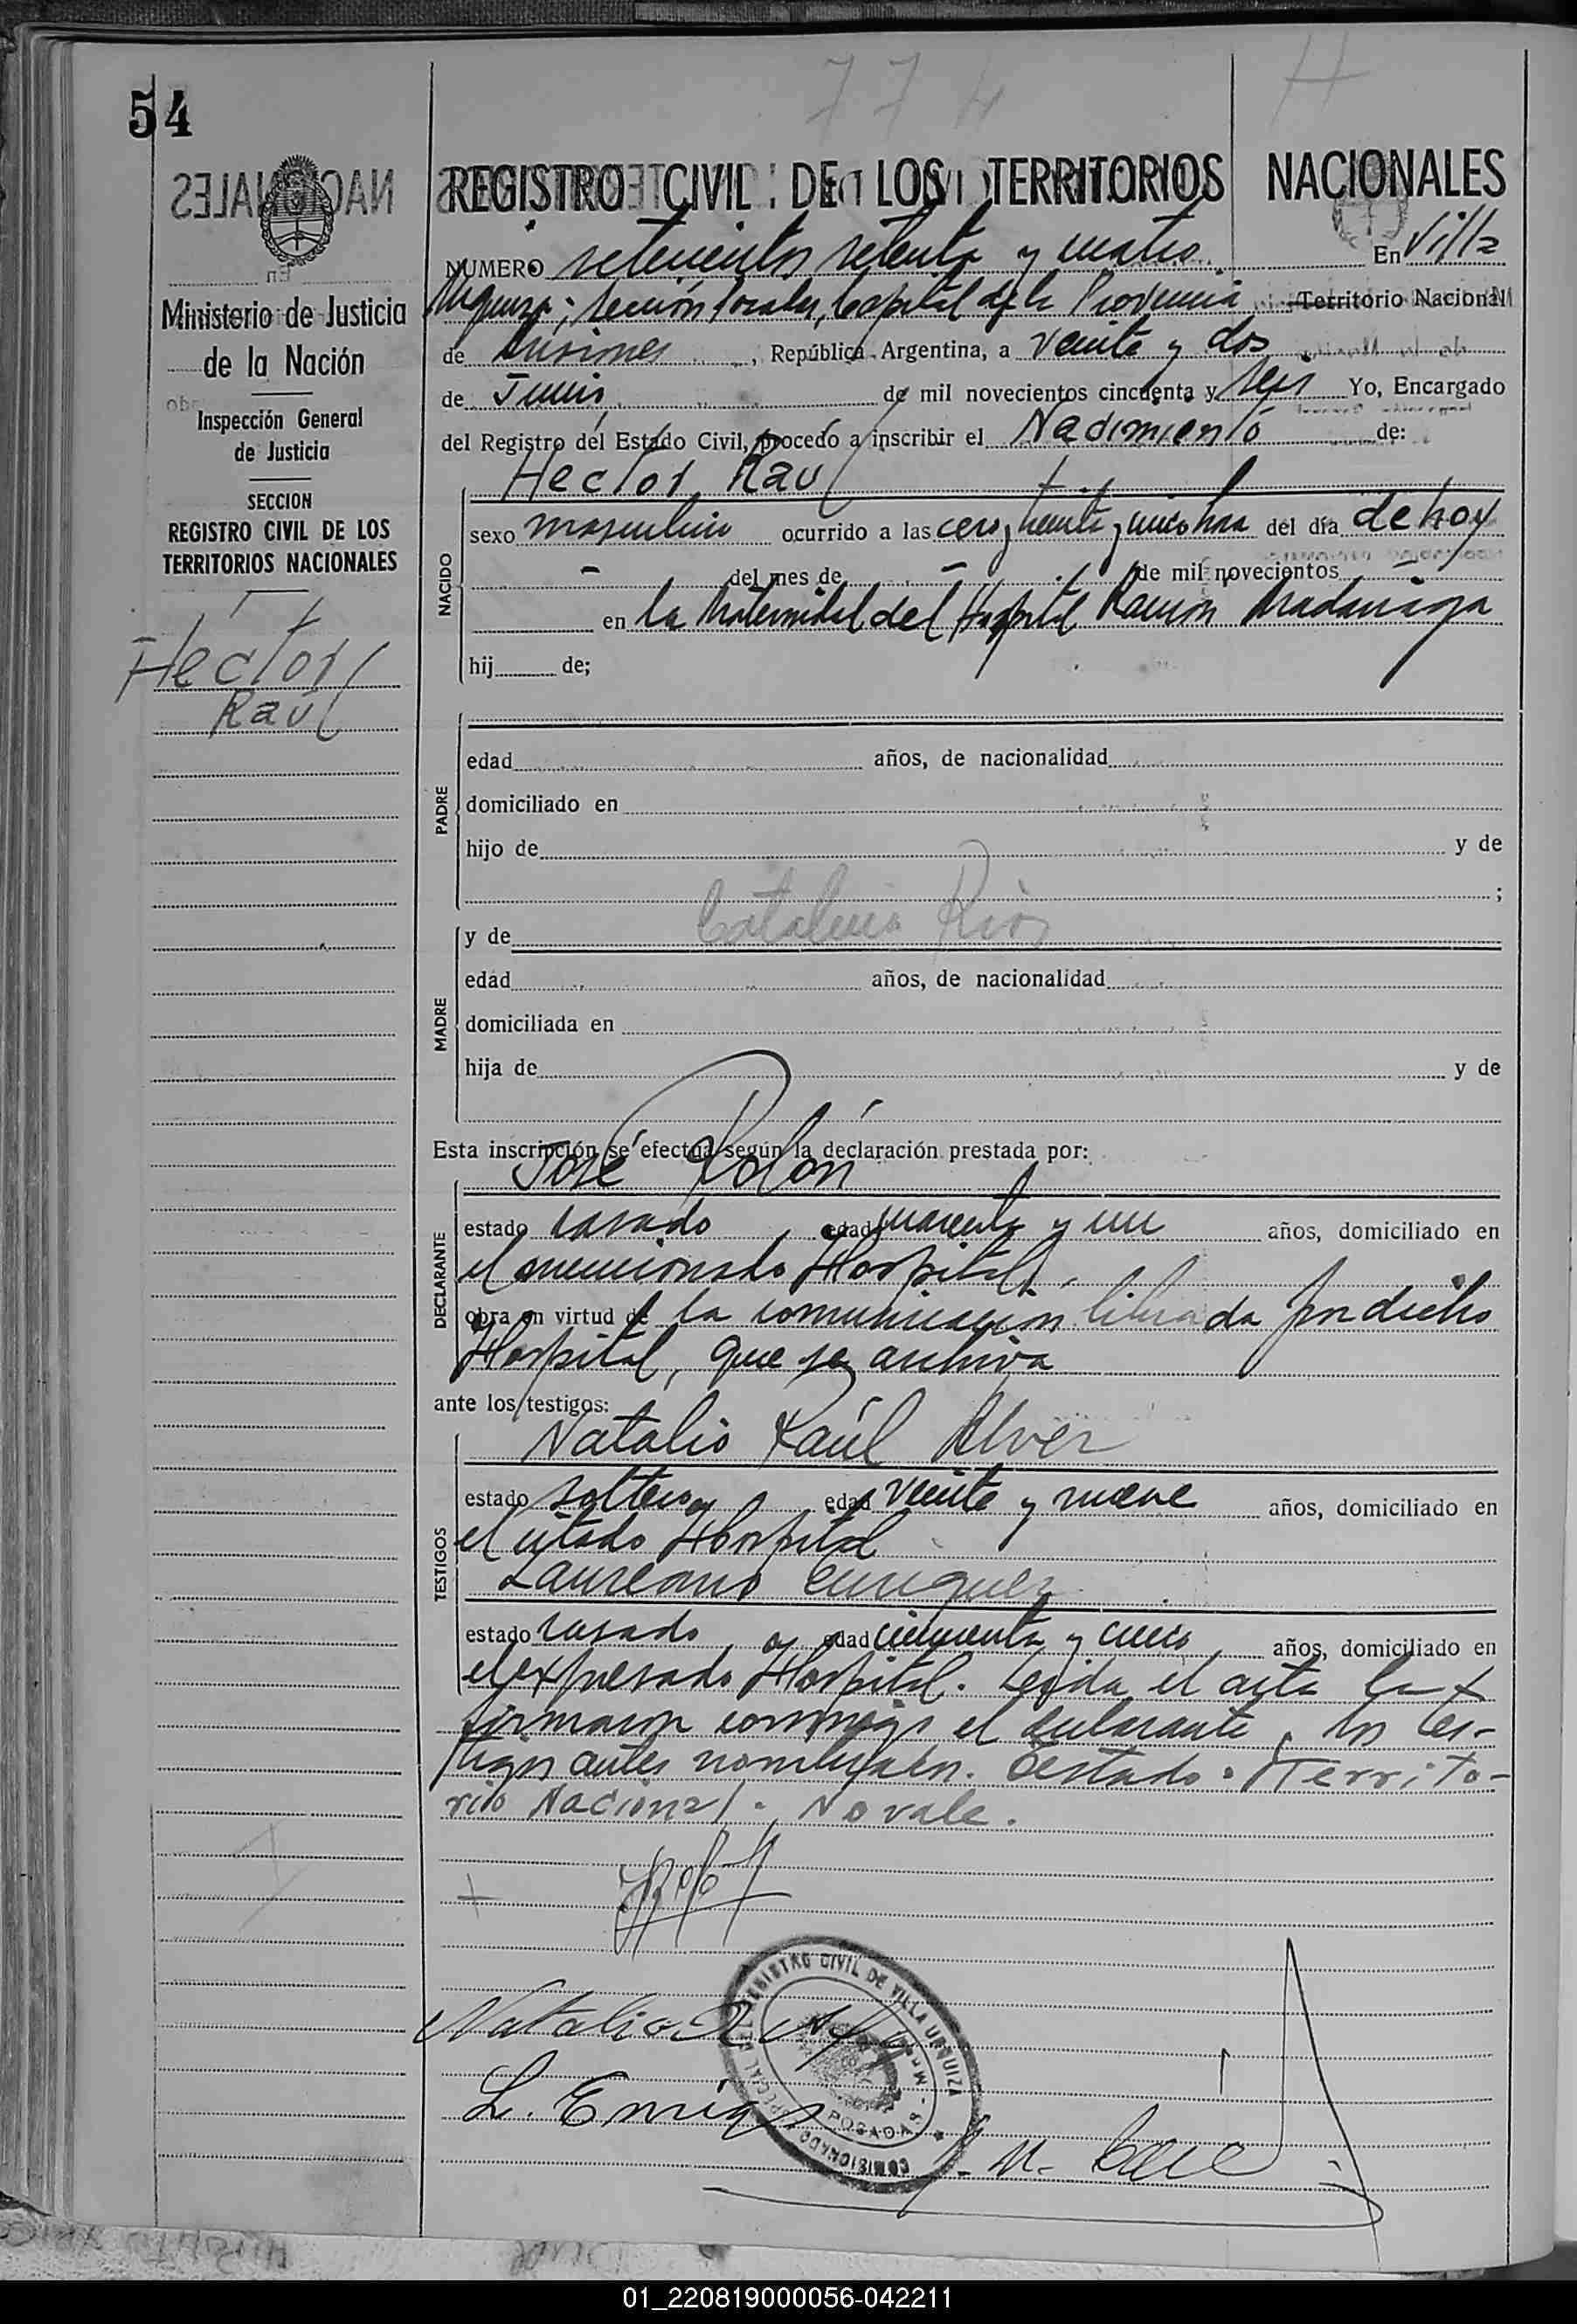 774 H
54
REGISTRO CIVIL DE LOS TERRITORIOS NACIONALES
NUMERO setecientos setenta y cuatro En Villa
Urquiza; sección Posadas, Capital de la Provincia Territorio Nacional
de Misiones, República Argentina, a veinte y dos
de Junio de mil novecientos cincuenta y seis Yo, Encargado
del Registro del Estado Civil, procedo a inscribir el Nacimiento de:
Hector Raul
NACIDO
sexo masculino ocurrido a las cero y treinta y cinco hora del día de hoy
- del mes de - de mil novecientos -
en la Maternidad del Hospital Ramón Madariaga
hij de;
PADRE
edad años, de nacionalidad
domiciliado en
hijo de y de
;
MADRE
y de Catalina Rios
edad años, de nacionalidad
domiciliada en
hija de y de
Esta inscripción se efectúa según la declaración prestada por:
José Rolón
DECLARANTE
estado casado edad cuarenta y un años, domiciliado en
el mencionado Hospital
obra en virtud de la comunicación librada por dicho
Hospital, que se archiva
ante los testigos:
Natalio Raúl Alvez
TESTIGOS
estado soltero edad veinte y nueve años, domiciliado en
el citado Hospital
Laureano Enriquez
estado casado edad cincuenta y cinco años, domiciliado en
el expresado Hospital. Leida el acta la
firmaron conmigo el declarante y los tes-
tigos antes nombrados. Testado: Territo-
rio Nacional. No vale.
Natalio R
L. Enriq
REGISTRO CIVIL DE VILLA URQUIZA
POSADAS
COMISIONADO
Ministerio de Justicia
de la Nación
Inspección General
de Justicia
SECCION
REGISTRO CIVIL DE LOS
TERRITORIOS NACIONALES
Hector
Raúl
01_220819000056-042211